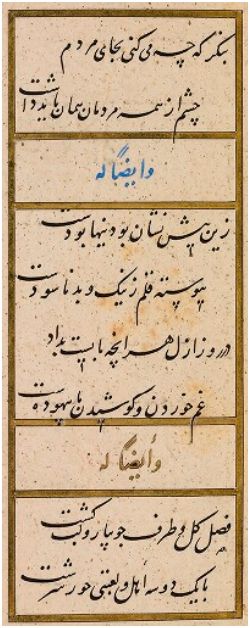 بنگر که چه می کنی بجای مردم
چشم از همه مردمان همان باید داشت
وایضاً له
زین پیش نشان بودنیها بودست
پیوسته قلم ز نیک و بد ناسودست
در روز ازل هر آنچه بایست بداد
غم خوردن و کوشیدن ما بیهودست
وأیضاً له
فصل گل و طرف جویبار و لب کشت
با یک دو سه اهل و لعبتی حور سرشت